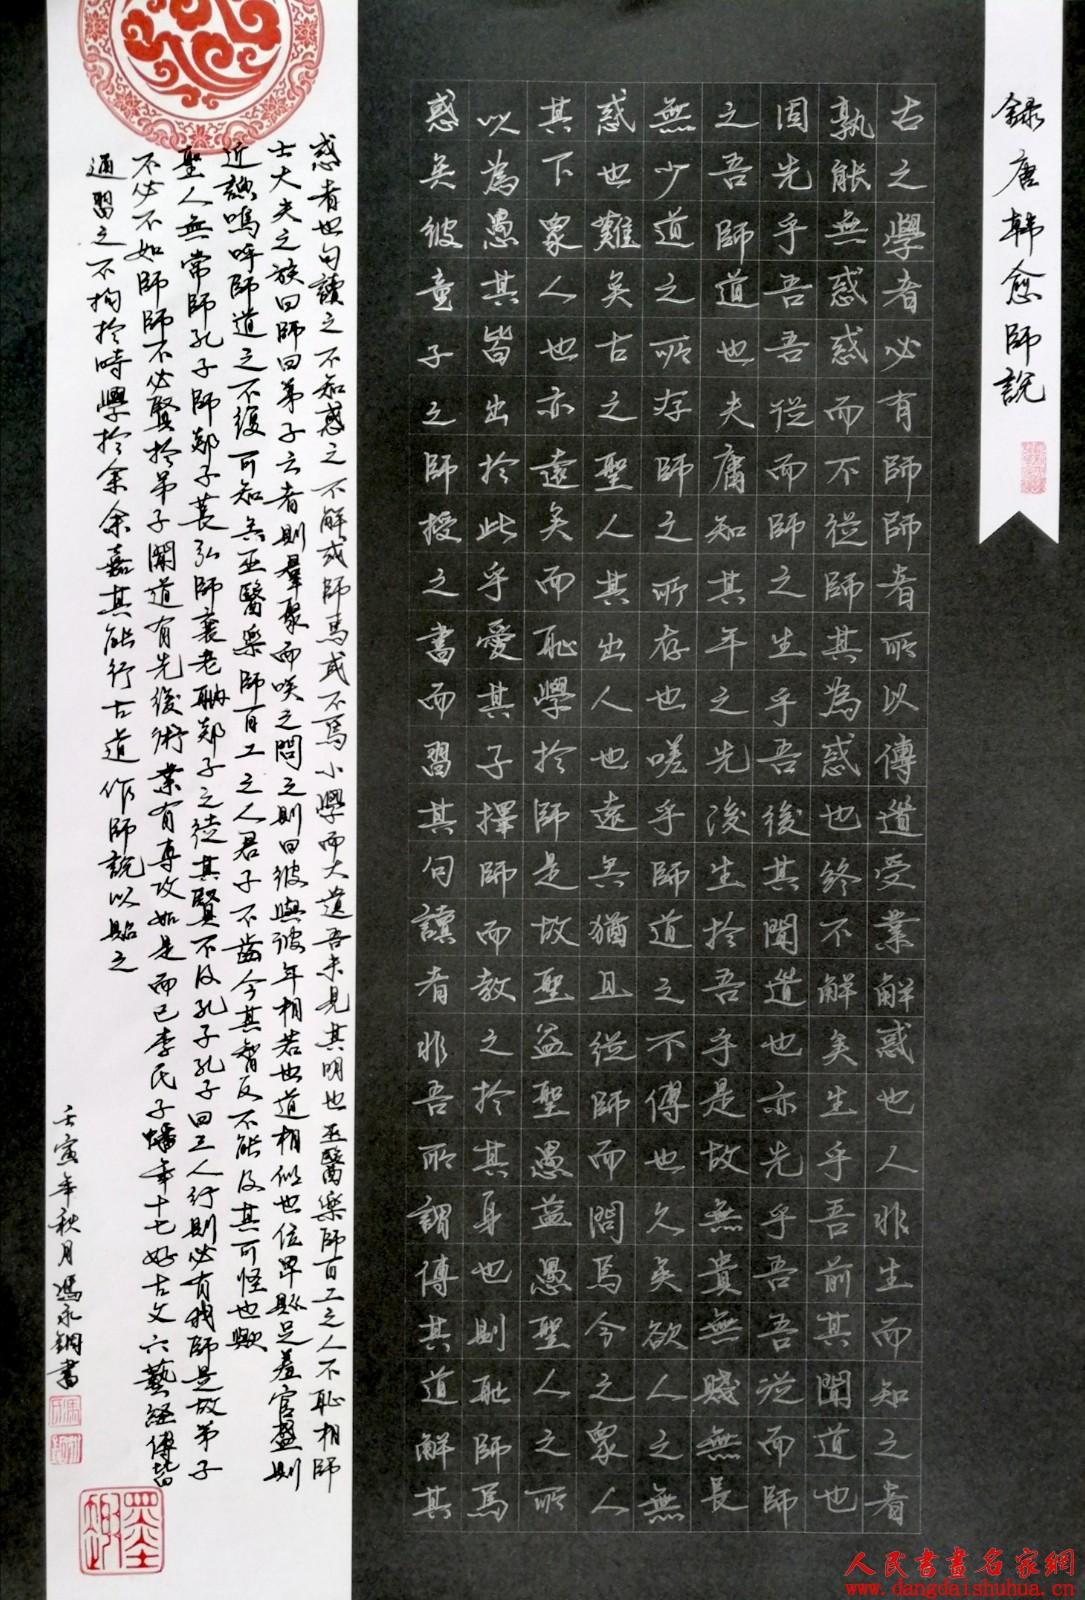 錄唐韓愈師說
古之學者必有師師者所以傳道受業解惑也人非生而知之者
孰能無惑惑而不從師其為惑也終不解矣生乎吾前其聞道也
固先乎吾吾從而師之生乎吾後其聞道也亦先乎吾吾從而師
之吾師道也夫庸知其年之先後生於吾乎是故無貴無賤無長
無少道之所存師之所存也嗟乎師道之不傳也久矣欲人之無
惑也難矣古之聖人其出人也遠矣猶且從師而問焉今之眾人
其下眾人也亦遠矣而恥學於師是故聖益聖愚益愚聖人之所
以為愚其皆出於此乎愛其子擇師而教之於其身也則恥師焉
惑矣彼童子之師授之書而習其句讀者非吾所謂傳其道解其
惑者也句讀之不知惑之不解或師焉或不焉小學而大遺吾未見其明也巫醫樂師百工之人不恥相師
士大夫之族曰師曰弟子云者則羣聚而笑之問之則曰彼與彼年相若也道相似也位卑則足羞官盛則
近諛嗚呼師道之不復可知矣巫醫樂師百工之人君子不齒今其智反不能及其可怪也歟
聖人無常師孔子師郯子萇弘師襄老聃郯子之徒其賢不及孔子孔子曰三人行則必有我師是故弟子
不必不如師師不必賢於弟子聞道有先後術業有專攻如是而已李氏子蟠年十七好古文六藝經傳皆
通習之不拘於時學於余余嘉其能行古道作師說以貽之
壬寅年秋月馮永鋼書
墨趣
人民書畫名家網
www.dangdaishuhua.cn